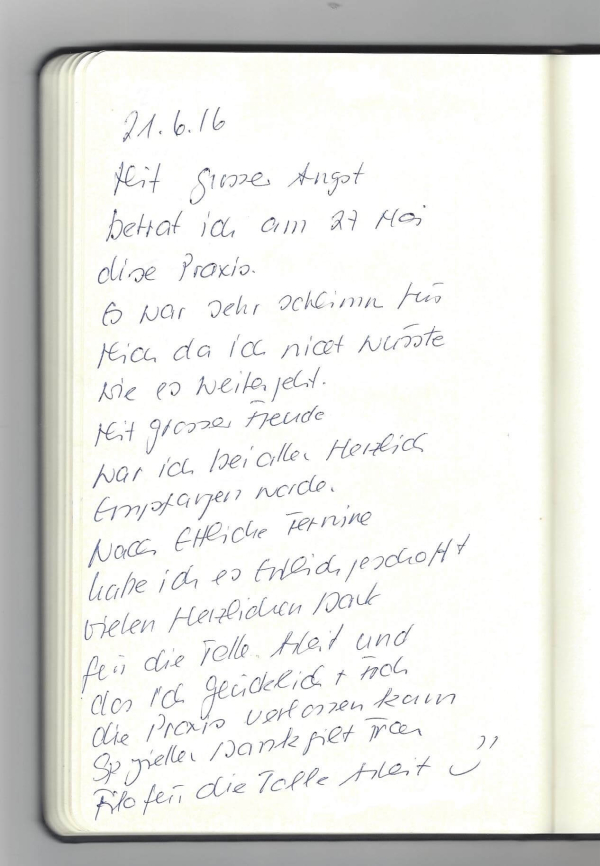 21.6.16
Mit grosser Angst
betrat ich am 27 Mai
dise Praxis.
Es war sehr schlimm für
Mich da ich nicht wusste
wie es weitergeht.
Mit grosser Freude
war ich bei allen Herzlich
Empfangen worde.
Nach Etliche Termine
habe ich es Entlich geschaft
vielen Herzlichen Dank
für die Tolle Arbeit und
das ich glücklich + froh
die Praxis verlassen kann
Spezieller Dank gilt Frau
für die Tolle Arbeit